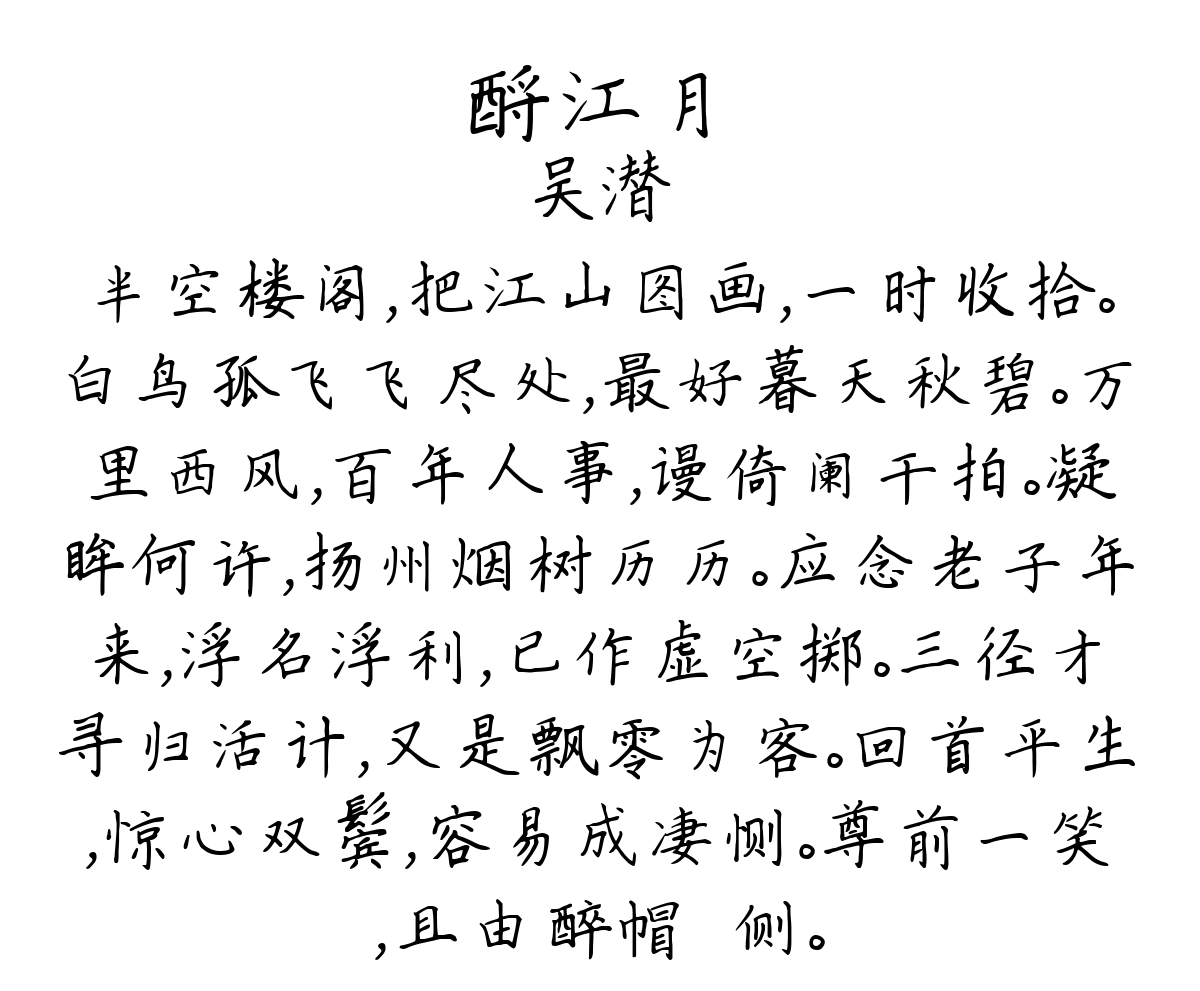 酹江月
吴潜
半空楼阁,把江山图画,一时收拾。
白鸟孤飞飞尽处,最好暮天秋碧。万
里西风,百年人事,谩倚阑干拍。凝
眸何许,扬州烟树历历。应念老子年
来,浮名浮利,已作虚空掷。三径才
寻归活计,又是飘零为客。回首平生
,惊心双鬓,容易成凄恻。尊前一笑
,且由醉帽 侧。